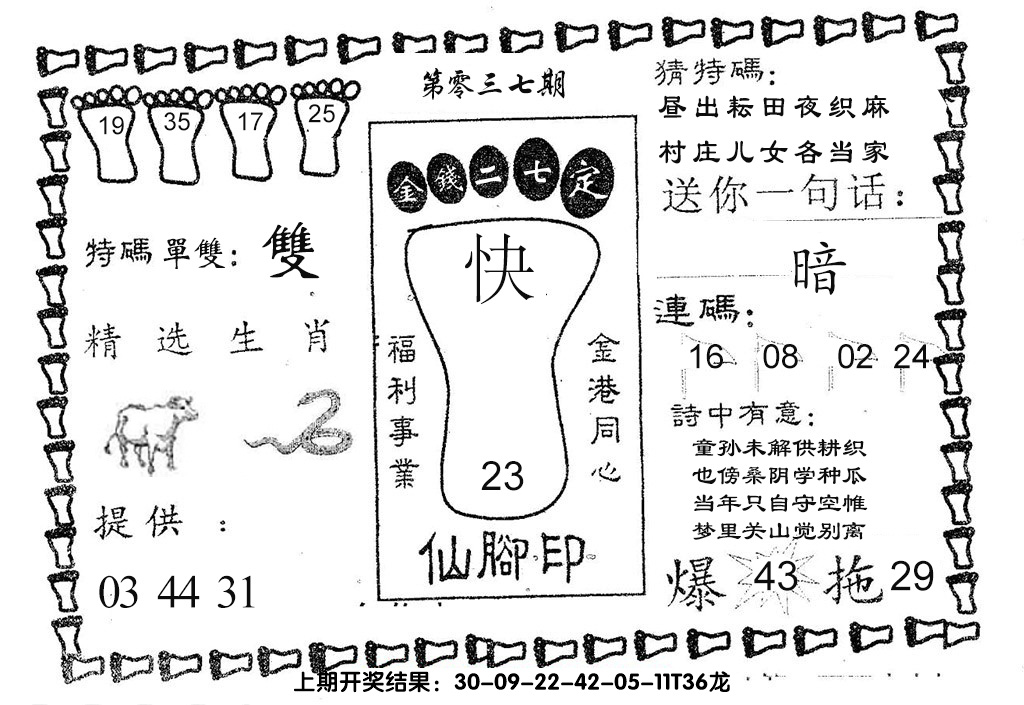 第零三七期
19 35 17 25
特碼單雙：雙
精选生肖
提供：
03 44 31
金錢二七定
快
福利事業
金港同心
23
仙腳印
猜特碼：
昼出耘田夜织麻
村庄儿女各当家
送你一句话：
暗
連碼：
16 08 02 24
詩中有意：
童孙未解供耕织
也傍桑阴学种瓜
当年只自守空帷
梦里关山觉别离
爆 43 拖 29
上期开奖结果：30-09-22-42-05-11T36龙